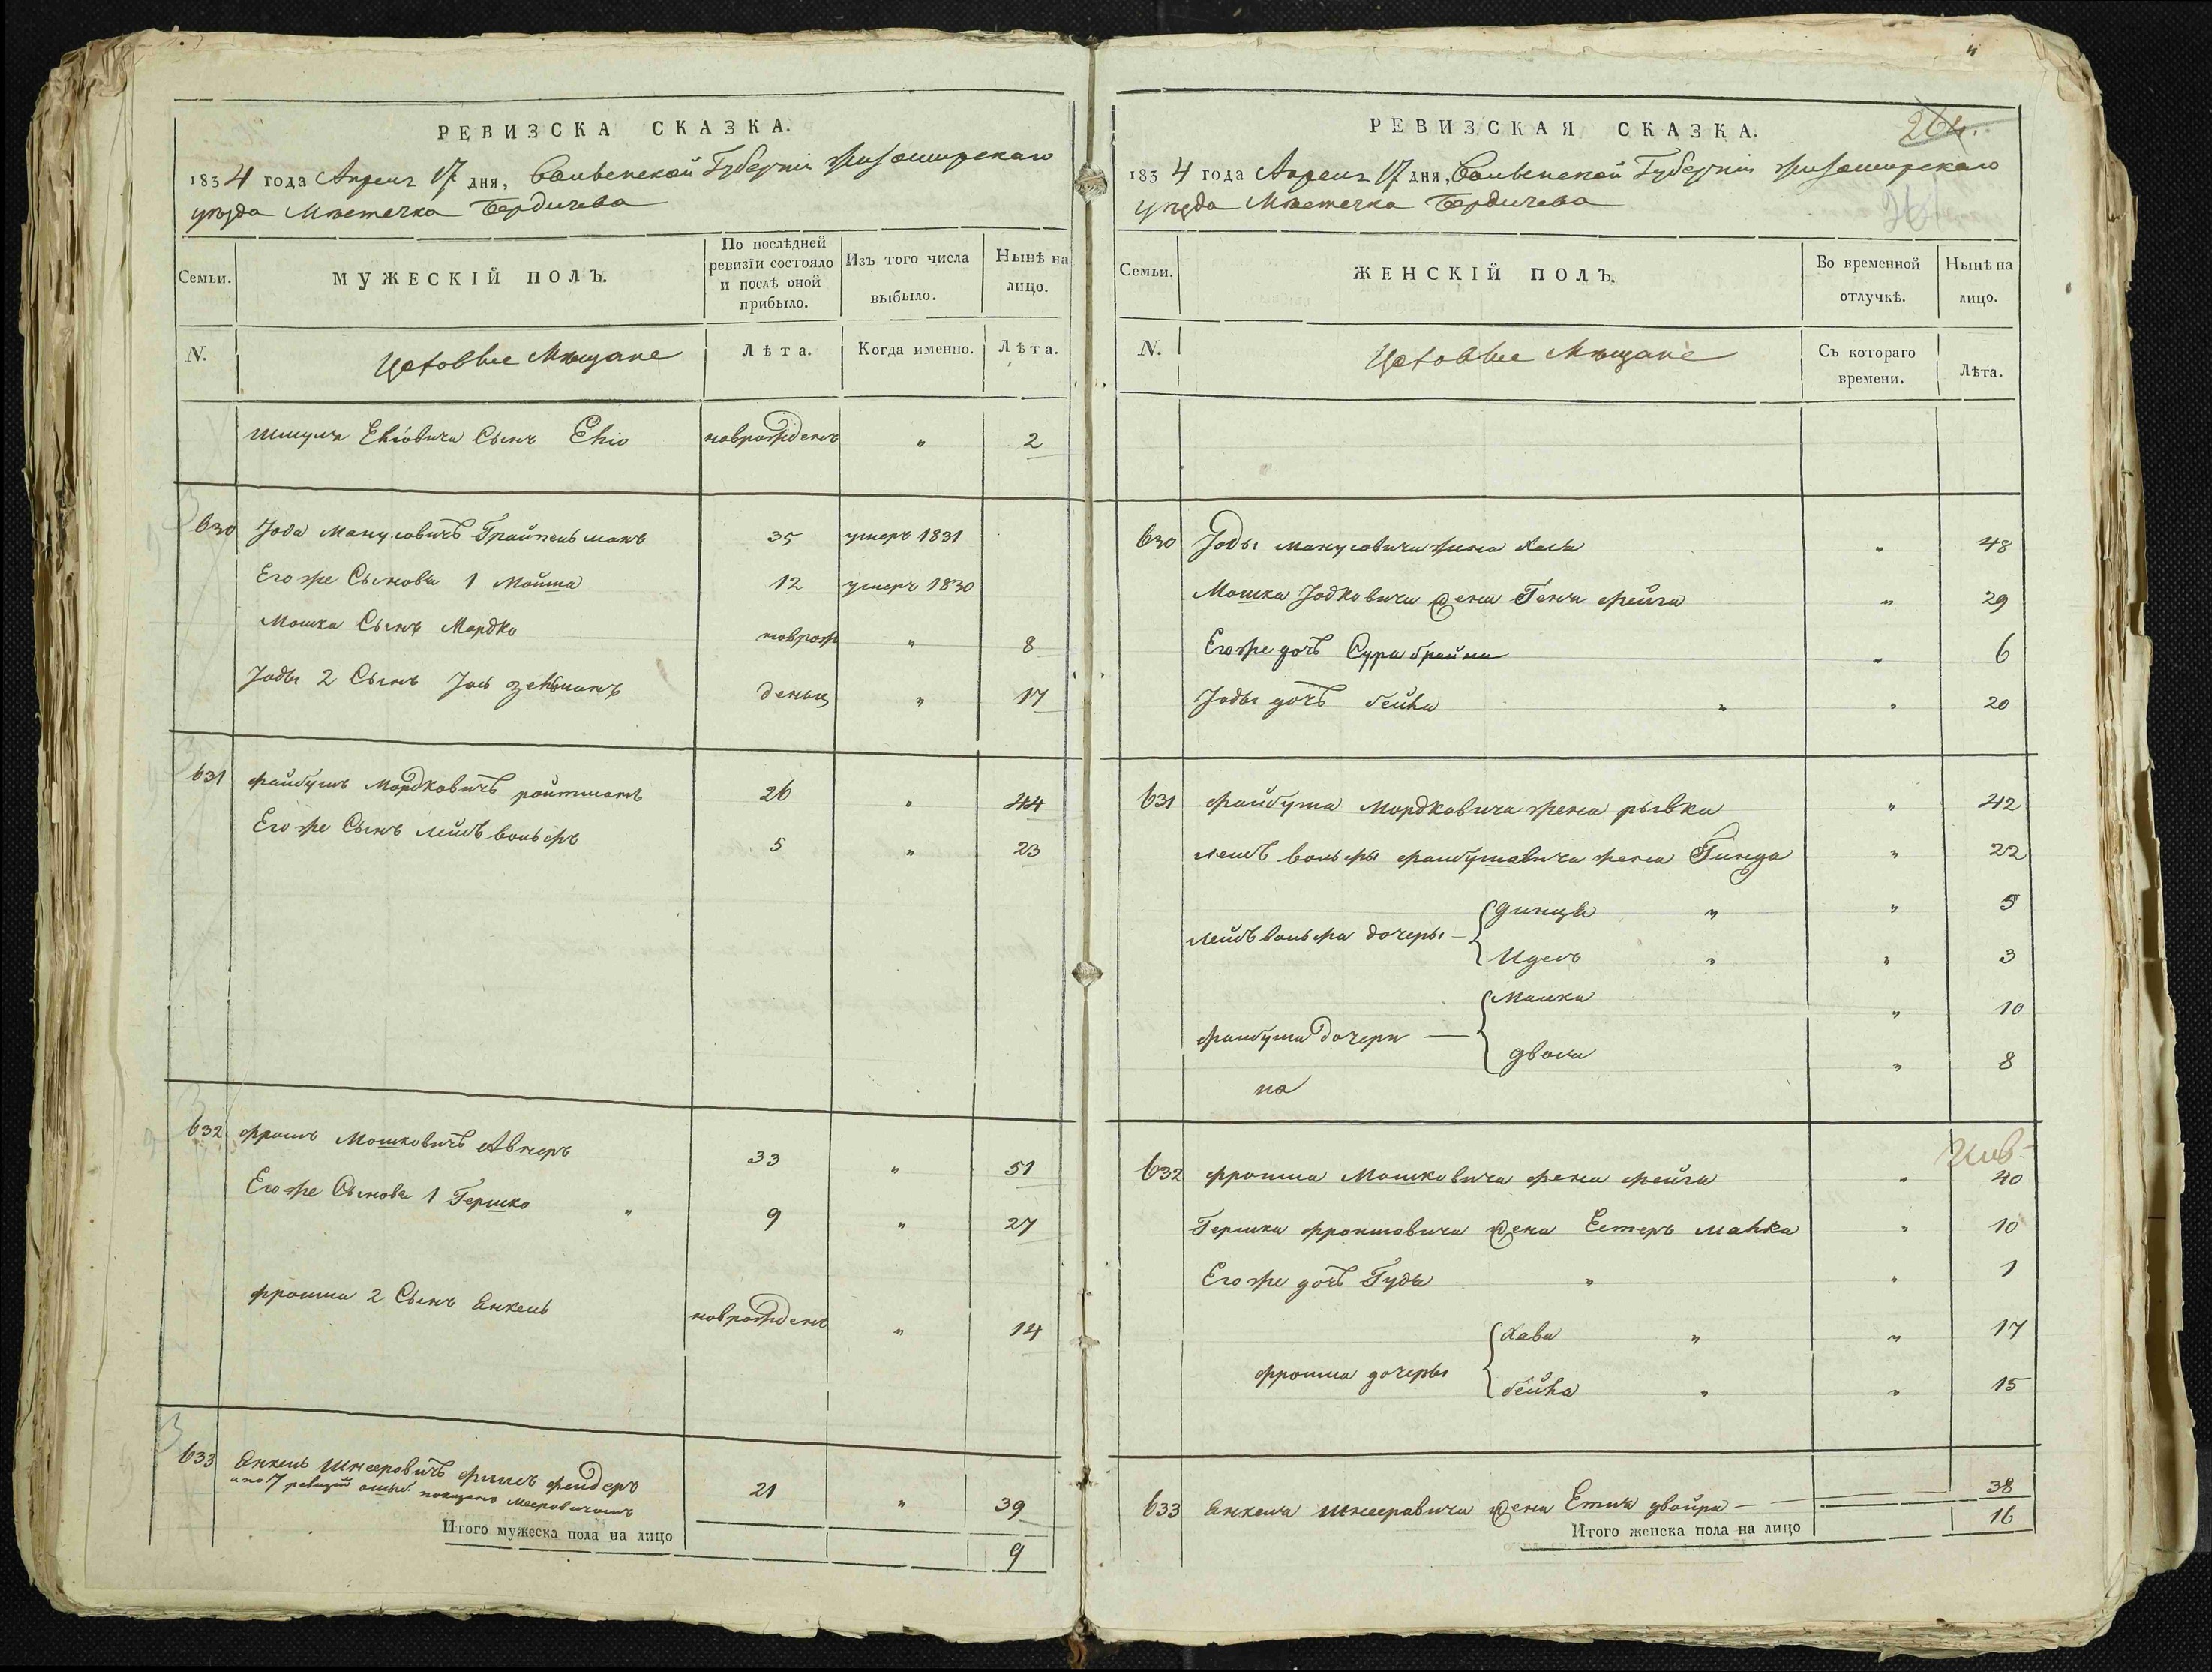 РЕВИЗСКА СКАЗКА.
1834 года Апреля 17 дня, Волынской Губерніи Житомирскаго
уѣзда Мѣстечка Бердичева
Семьи. МУЖЕСКІЙ ПОЛЪ. По послѣдней ревизіи состояло и послѣ оной прибыло. Изъ того числа выбыло. Нынѣ на лицо.
N. Мѣщане Лѣта. Когда именно. Лѣта.
Сынъ новрожденъ " 2
630 Іода Мануловичъ 35 умеръ 1831
Его же Сыновя 1 Мошка 12 умеръ 1830
Мошка Сынъ Мордко новрож " 8
Іоды 2 Сынъ Іось денны " 17
631 Файбушъ Мордковичъ ройтманъ 26 " 44
Его же Сынъ лейбъ вольфъ 5 " 23
632 фроимъ Мошковичъ Авнеръ 33 " 51
Его же Сыновя 1 Гершко " 9 " 27
фроима 2 Сынъ Янкель новрожденъ " 14
633 Янкель Шнееровичъ 21 " 39
а по 7 ревизіи показанъ Мееровичомъ
Итого мужеска пола на лицо 9
РЕВИЗСКАЯ СКАЗКА.
264.
1834 года Апреля 17 дня, Волынской Губерніи Житомирскаго
уѣзда Мѣстечка Бердичева
Семьи. ЖЕНСКІЙ ПОЛЪ. Во временной отлучкѣ. Нынѣ на лицо.
N. Мѣщане Съ котораго времени. Лѣта.
630 Іоды мануловича жена Хася " 48
Мошка Іодковича жена Геня фейга " 29
Его же дочъ Сура брайна " 6
Іоды дочъ бейла " " 20
631 файбуша Мордковича жена рывка " 42
лейбъ вольфы файбушовича жена Гинда " 22
лейбъ вольфа дочеры — динця " " 5
Идесъ " " 3
файбуша дочери — Малка " 10
двося " 8
632 фроима Мошковича жена фейга " 40
Гершка фроимовича жена Естеръ малка " 10
Его же дочъ Гудя " " 1
фроима дочеры Хава " " 17
бейла " " 15
633 Янкеля шнееровича жена Етия двойра — 38
Итого женска пола на лицо 16